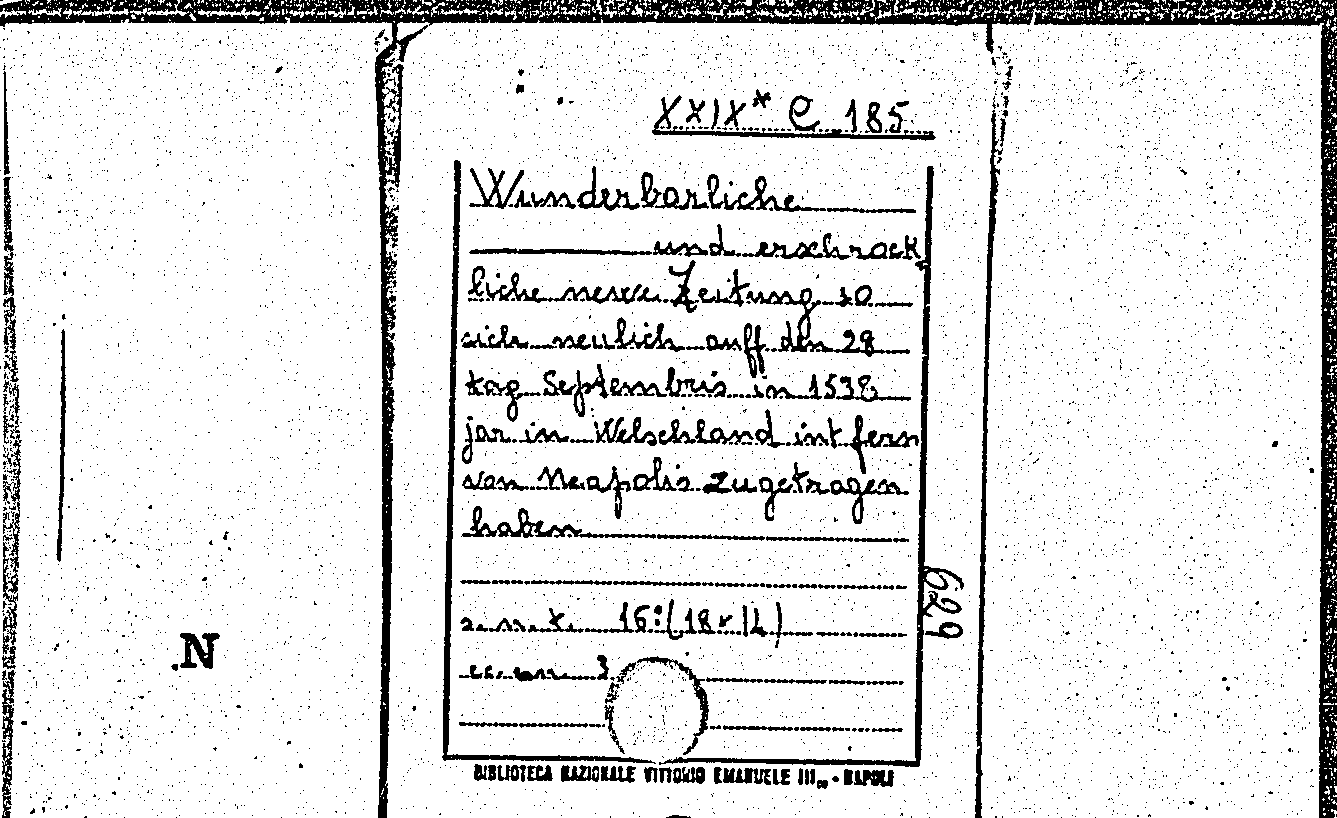 XXIX* C 185
Wunderbarliche
und erschrock
liche newe Zeitung so
sich neulich auff den 28
tag Septembris in 1538
jar in Welschland int fern
von Neapolis zugetragen
haben
s. n. t. 16º (18 × 14)
cc. nn. 3
629
N
BIBLIOTECA NAZIONALE VITTORIO EMANUELE III - NAPOLI